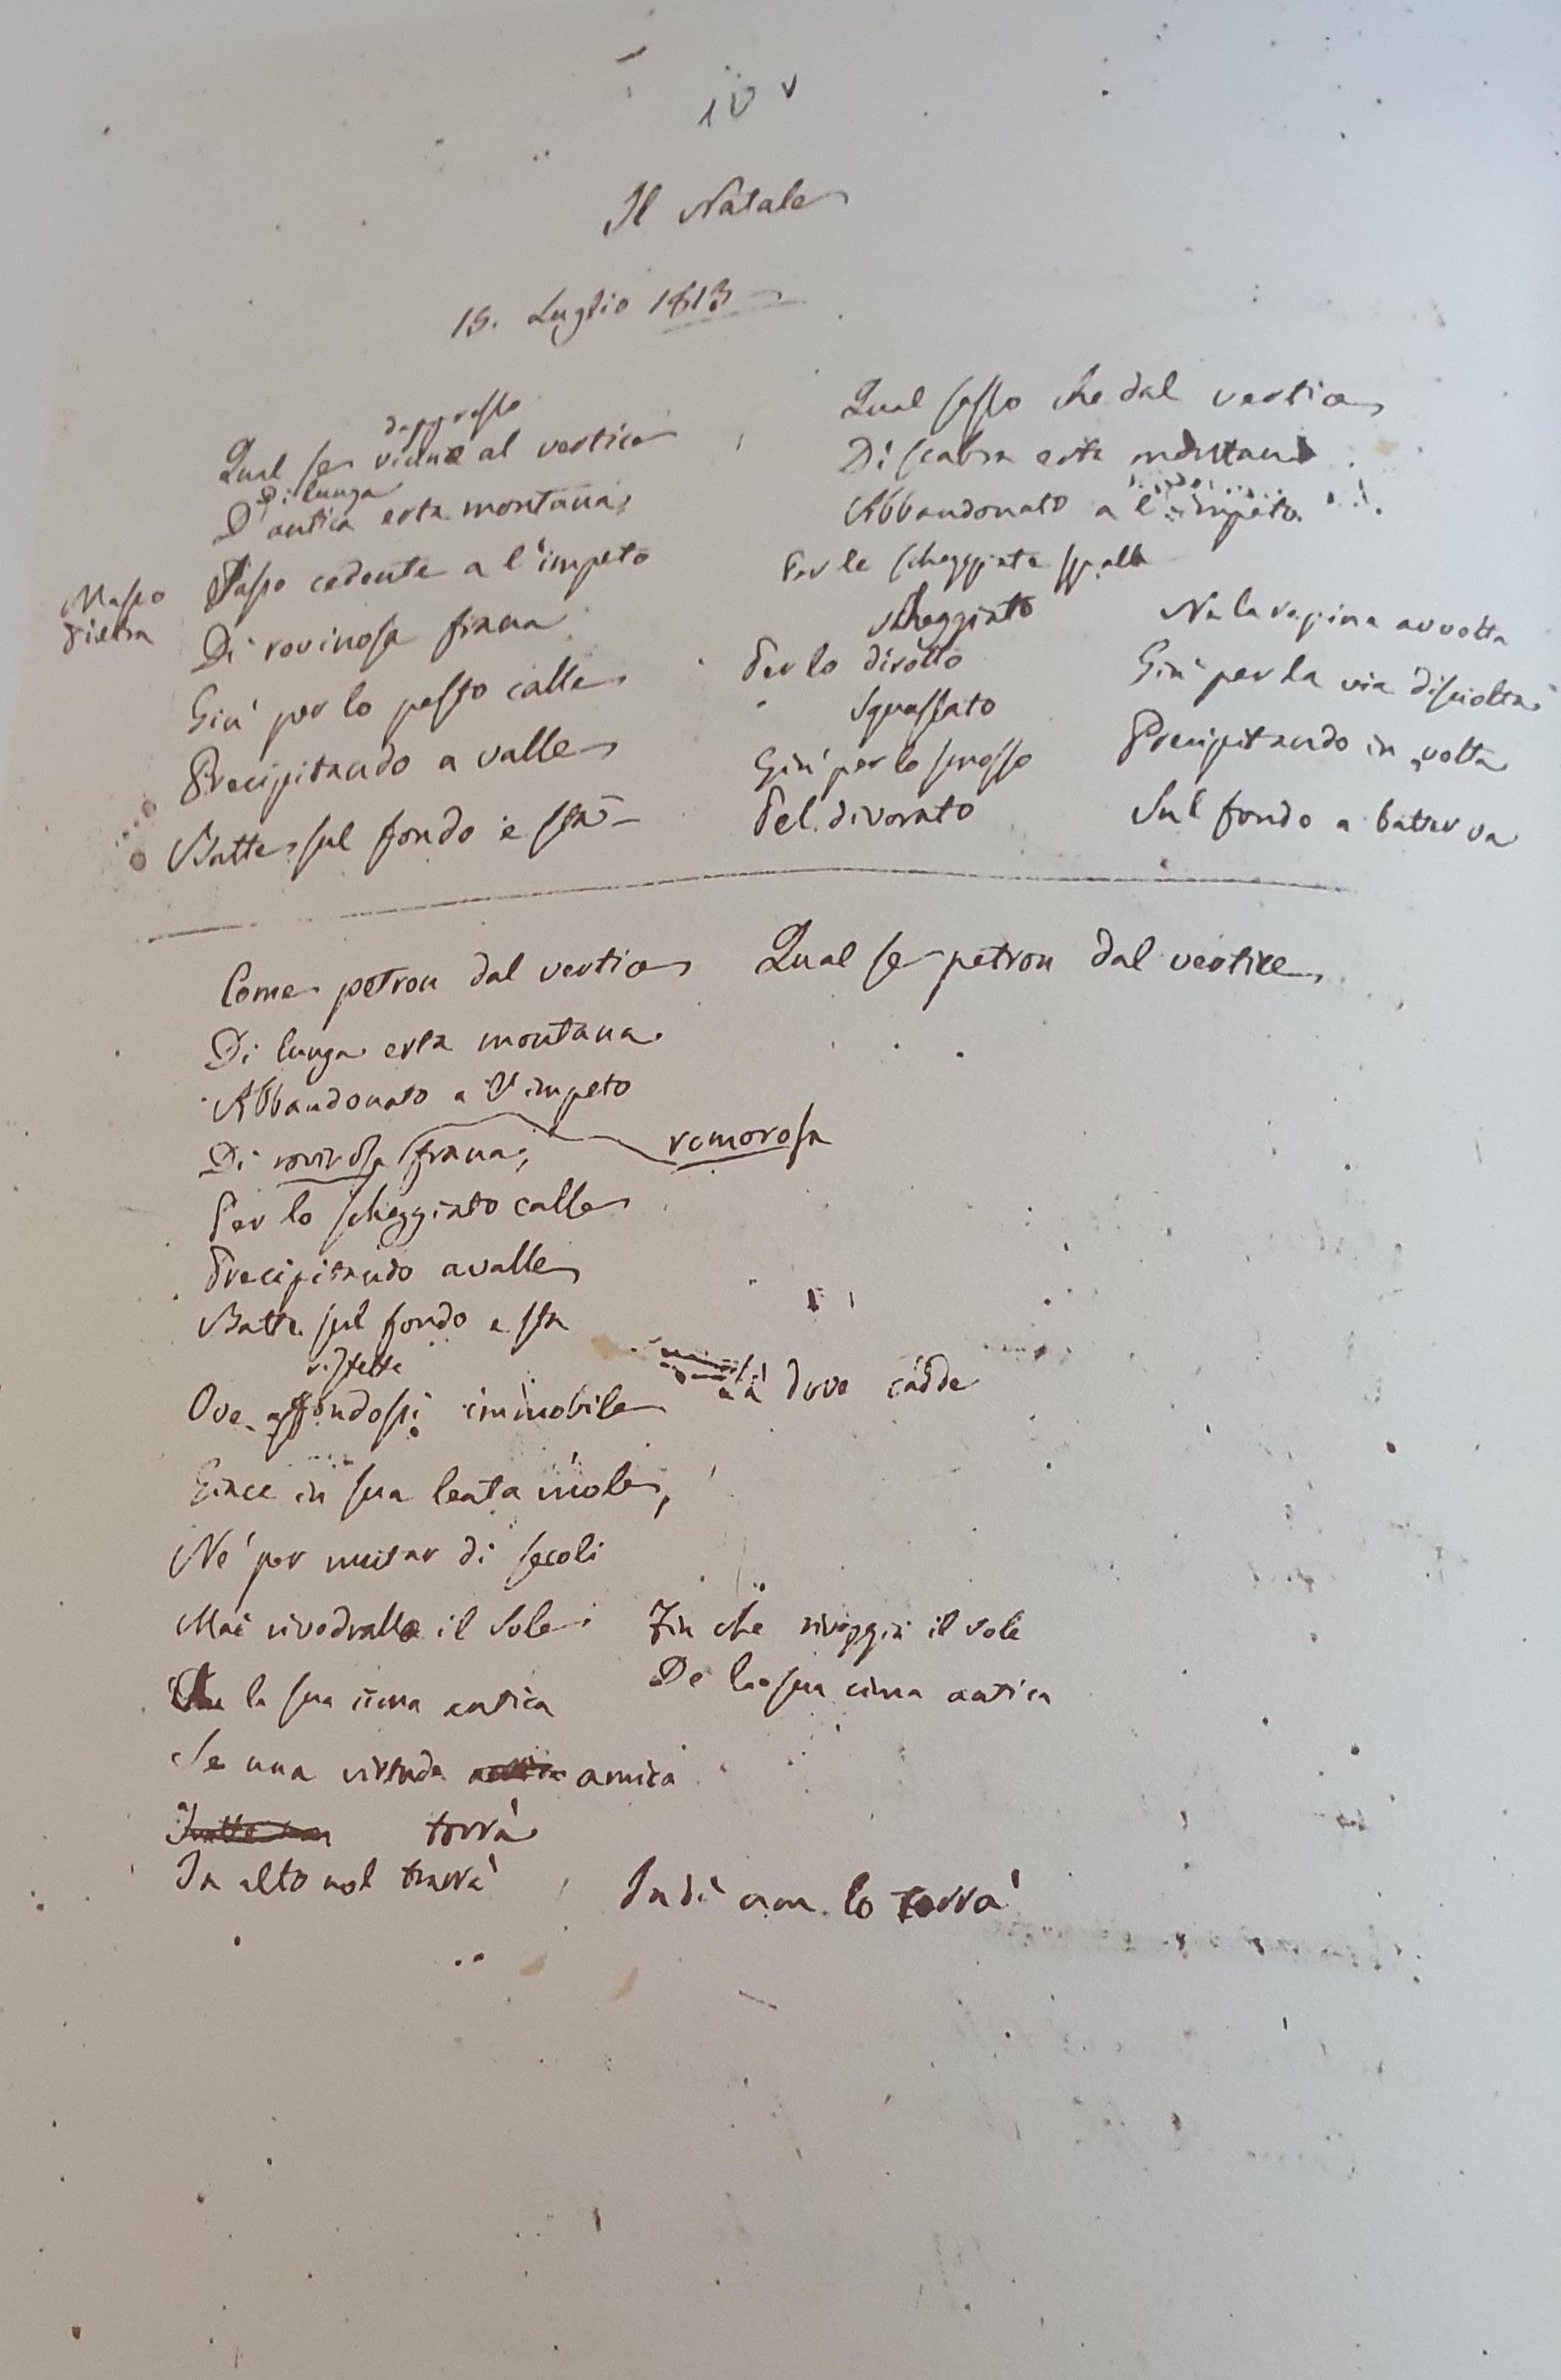 10 v
Il Natale
15. Luglio 1813
dappresso
Qual se vicino al vertice
Di lunga
D'antica erta montana,
Masso
Pietra
Sasso cedente a l'impeto
Di rovinosa frana
Giù per lo pesto calle
Precipitando a valle
Batte sul fondo e sta –
Qual sasso che dal vertice
Di scabra erta montana
Abbandonato a l'impeto
Per le scheggiate spalle
scheggiato
Per lo dirotto
squassato
Giù per lo smosso
Pel divorato
Ne la rapina avvolta
Giù per la via disciolta
Precipitando in volta
Sul fondo a batter va
Come petron dal vertice
Qual se petron dal vertice
Di lunga erta montana
Abbandonato a l'impeto
Di rovinosa frana,
romorosa
Per lo scheggiato calle
Precipitando a valle
Batte sul fondo e sta
ristette
Ove affondossi immobile
Là dove cadde
Giace in sua lenta mole,
Né per mutar di secoli
Mai rivedralle il Sole
Fin che rivegga il sole
Che la sua cima antica
De la sua cima antica
Se una virtude amica
torrà
In alto nol trarrà
Indi non lo torrà